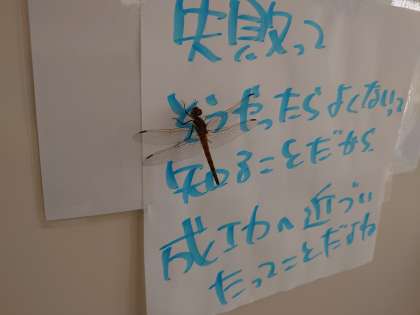 失敗って
どうやったらよくないって
知ることだから
成功へ近づい
たってことだよね